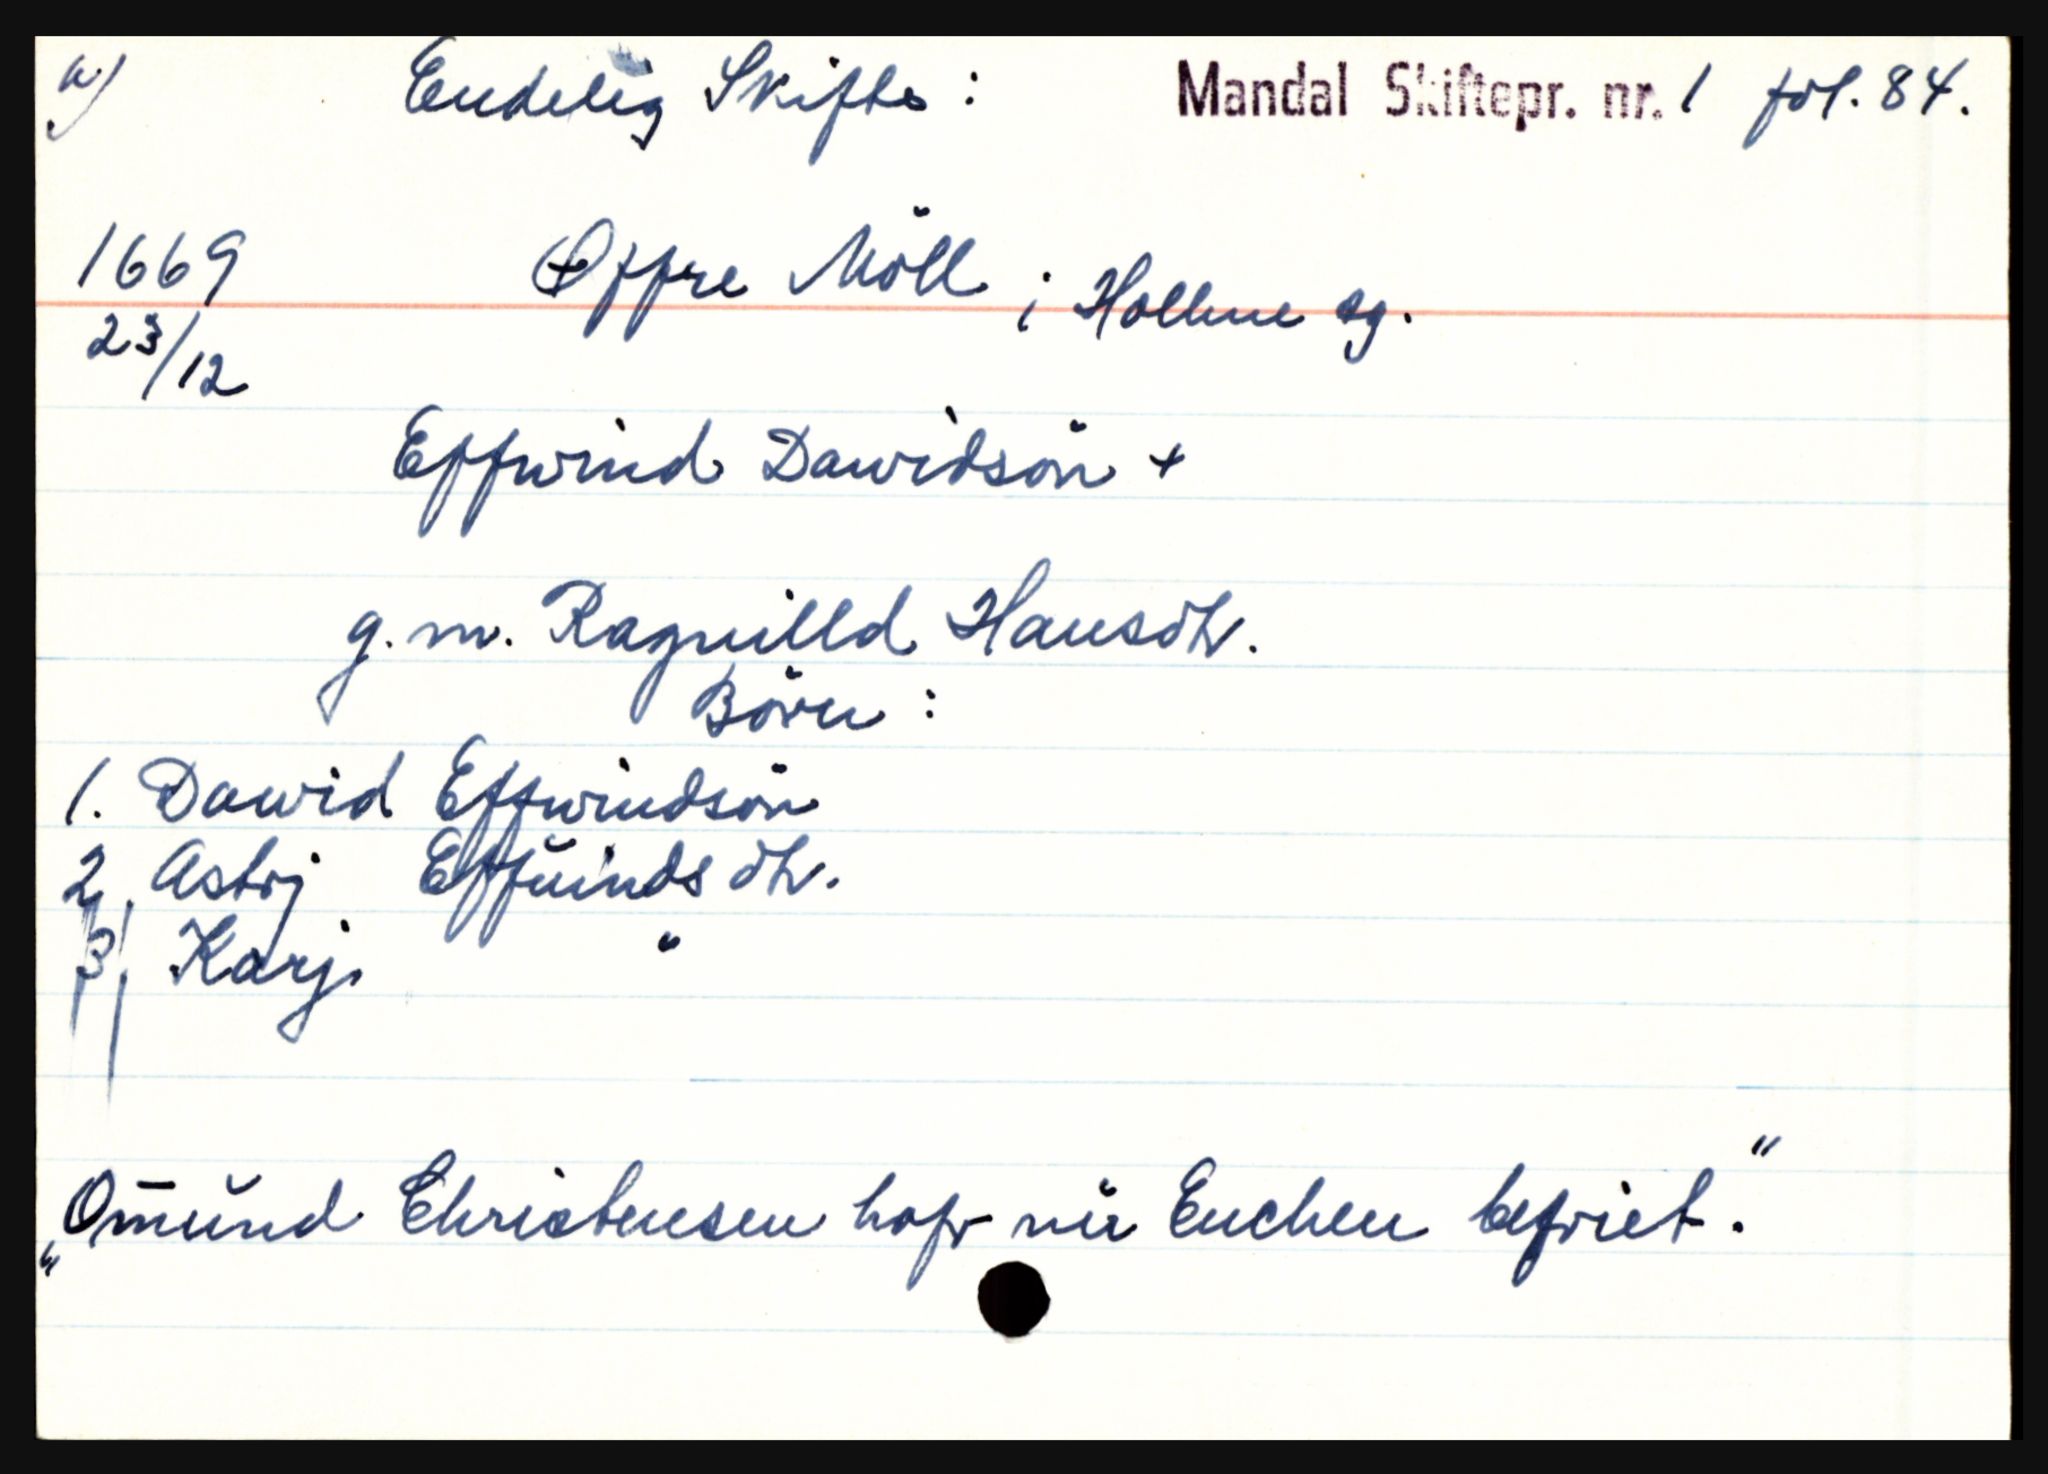 a) Endelig Skifte: Mandal Skiftepr. nr. 1 fol. 84.
1669 Øffre Möll i Hollme sg.
23/12
Effwind Dawidsön +
g. m. Ragnilld Hansdtr.
Börn:
1. Dawid Effwindsön
2. Astrj Effŭindsdtr.
3. Karj "
„Om̄ŭnd Christensen hafr nŭ Enchen befriet."